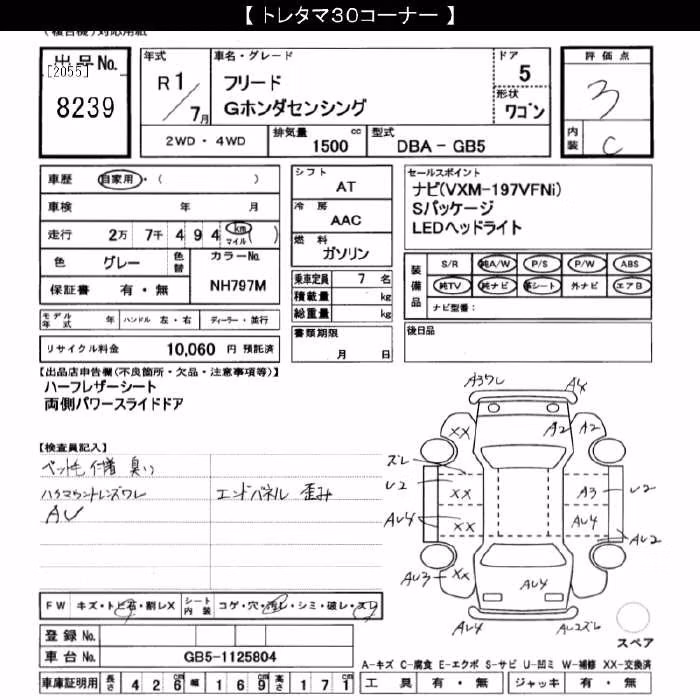 【 トレタマ30コーナー 】
(複合機)対応用紙
出品No.
[2055]
8239
年式
R 1/7月
車名・グレード
フリード
Gホンダセンシング
ドア
5
形状
ワゴン
2WD・4WD
排気量 1500 cc
型式 DBA - GB5
評価点
3
内装 C
車歴 自家用・( )
車検 年 月
走行 2万 7千 4 9 4 ( km マイル )
色 グレー 色替
カラーNo.
NH797M
保証書 有・無
モデル年式 年 ハンドル 左・右 ディーラー・並行
リサイクル料金 10,060 円 預託済
シフト
AT
冷房
AAC
燃料
ガソリン
乗車定員 7 名
積載量 kg
総重量 kg
書類期限
月 日
セールスポイント
ナビ(VXM-197VFNi)
Sパッケージ
LEDヘッドライト
装備品
S/R 純A/W P/S P/W ABS
純TV 純ナビ 革シート 外ナビ エアB
ナビ型番:
後日品
【出品店申告欄(不良箇所・欠品・注意事項等)】
ハーフレザーシート
両側パワースライドドア
【検査員記入】
ペット毛 付着 臭い
ハイマウントレンズワレ エンドパネル 歪み
AU
A3ワレ A4
XX A2 A2
ズレ
U2 XX A3 U2
AU4 XX AU4 AU2
AU3 XX AU4
AU4 AU2ズレ
スペア
FW キズ・トビ石・割レX シート内装 コゲ・穴・汚レ・シミ・破レ・スレ
登録No.
車台No. GB5-1125804
車庫証明用 長さ 4 2 6 cm 幅 1 6 9 cm 高さ 1 7 1 cm
A-キズ C-腐食 E-エクボ S-サビ U-凹ミ W-補修 XX-交換済
工具 有・無 ジャッキ 有・無